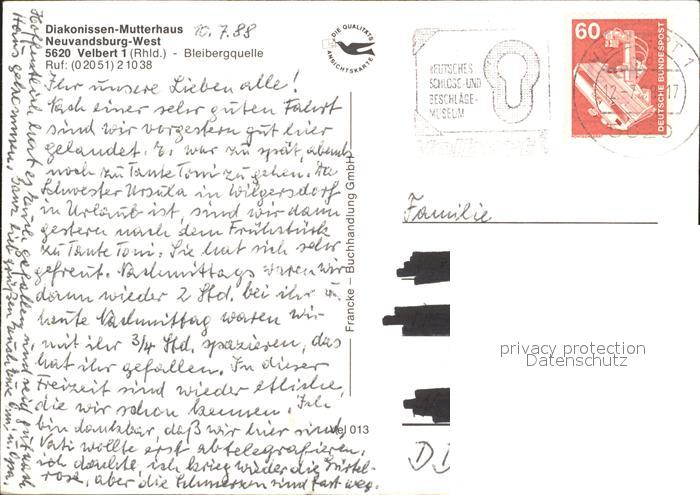 Diakonissen-Mutterhaus
Neuvandsburg-West
5620 Velbert 1 (Rhld.) - Bleibergquelle
Ruf: (0 20 51) 2 10 38
10.7.88
Ihr unsere Lieben alle!
Nach einer sehr guten Fahrt
sind wir vorgestern gut hier
gelandet. Es war zu spät, abends
noch zu Tante Toni zu gehen. Da
Schwester Ursula in Wilgersdorf
in Urlaub ist, sind wir dann
gestern nach dem Frühstück
zu Tante Toni. Sie hat sich sehr
gefreut. Nachmittags waren wir
dann wieder 2 Std. bei ihr u.
heute Nachmittag waren wir
mit ihr 3/4 Std. spazieren, das
hat ihr gefallen. In dieser
Freizeit sind wieder etliche,
die wir schon kennen. Ich
bin dankbar, daß wir hier sind,
Vati wollte erst abtelegrafieren,
ich dachte, ich krieg wieder die Gürtel-
rose, aber die Schmerzen sind fast weg.
Hoffentlich hat es Euch gefallen und seid gut nach
Haus gekommen. Ganz lieb grüßen Euch Eure Omi u. Opa
DIE QUALITÄTS
ANSICHTSKARTE
Francke – Buchhandlung GmbH
Vel 013
DEUTSCHES
SCHLOSS- UND
BESCHLÄGE-
MUSEUM
60
DEUTSCHE BUNDESPOST
Familie
privacy protection
Datenschutz